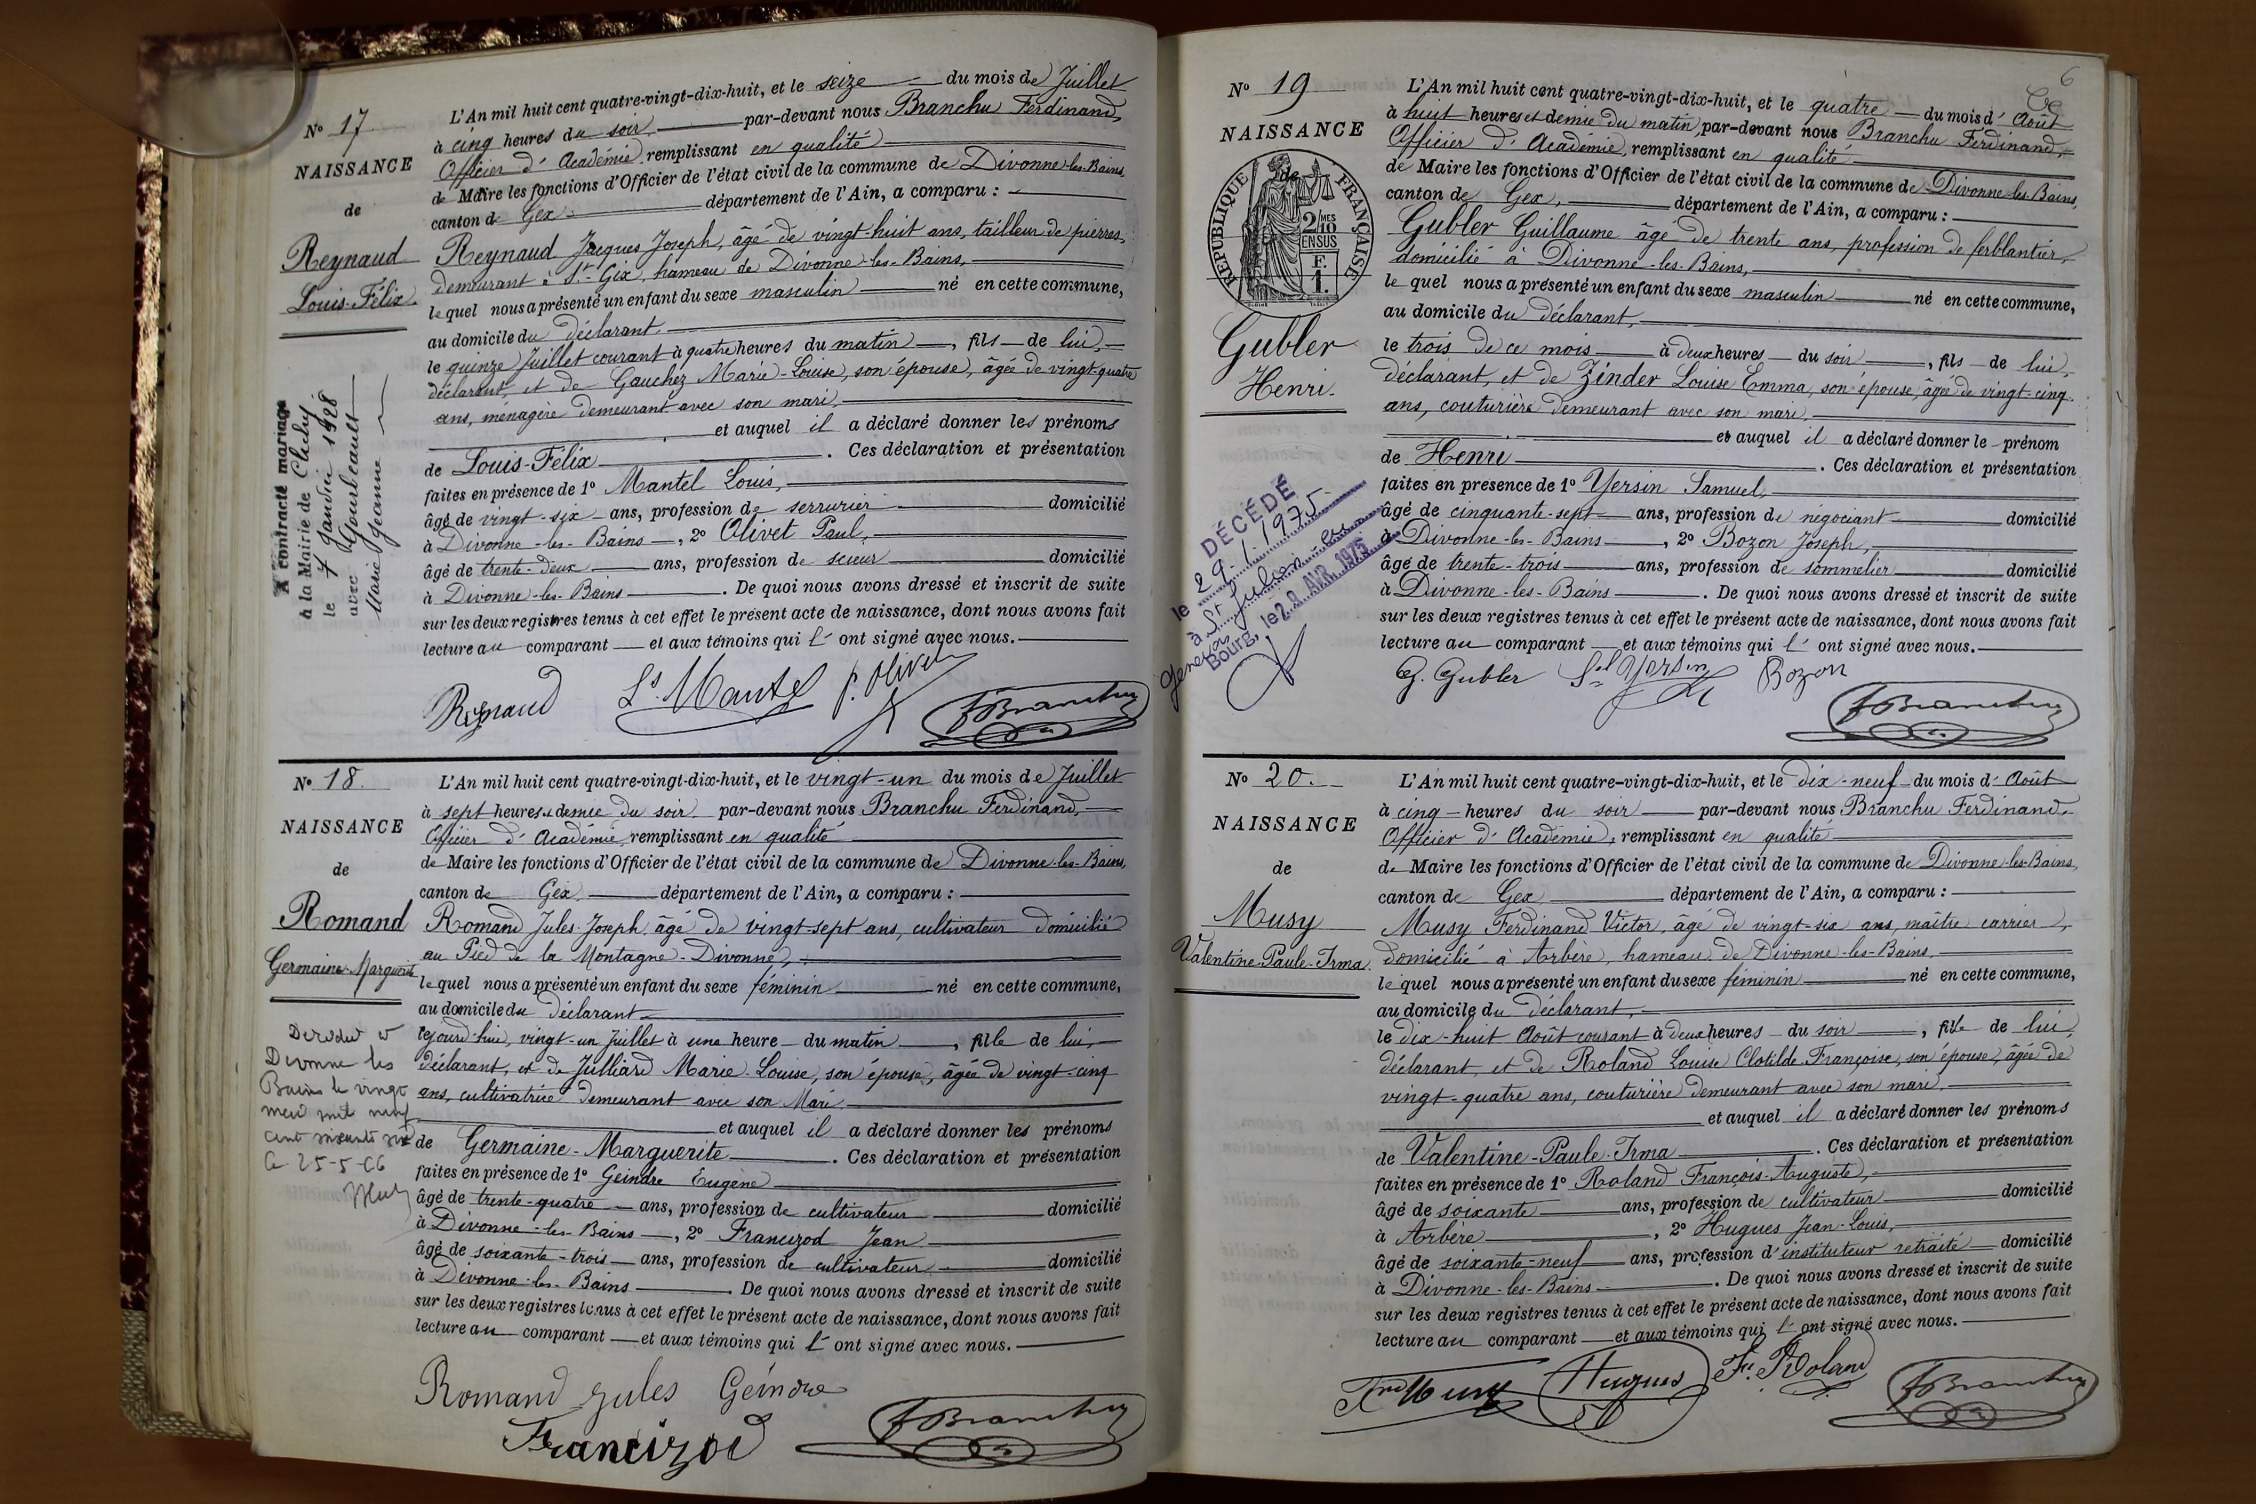 N° 17
NAISSANCE
de
Reynaud
Louis-Félix
A contracté mariage
à la Mairie de Clichy
le 7 Janvier 1928
avec Gourbeault
Marie Jeanne
L'An mil huit cent quatre-vingt-dix-huit, et le seize du mois de Juillet
à cinq heures du soir, par-devant nous Branchu Ferdinand,
Officier d'Académie remplissant en qualité
de Maire les fonctions d'Officier de l'état civil de la commune de Divonne-les-Bains,
canton de Gex, département de l'Ain, a comparu :
Reynaud Jacques Joseph, âgé de vingt-huit ans, tailleur de pierres,
demeurant à St Gix, hameau de Divonne-les-Bains,
lequel nous a présenté un enfant du sexe masculin né en cette commune,
au domicile du déclarant,
le quinze Juillet courant à quatre heures du matin, fils de lui,
déclarant, et de Gauchez Marie-Louise, son épouse, âgée de vingt-quatre
ans, ménagère demeurant avec son mari,
et auquel il a déclaré donner les prénoms
de Louis-Félix. Ces déclaration et présentation
faites en présence de 1° Mantel Louis,
âgé de vingt-six ans, profession de serrurier domicilié
à Divonne-les-Bains, 2° Olivet Paul,
âgé de trente-deux ans, profession de scieur domicilié
à Divonne-les-Bains. De quoi nous avons dressé et inscrit de suite
sur les deux registres tenus à cet effet le présent acte de naissance, dont nous avons fait
lecture au comparant et aux témoins qui l'ont signé avec nous.
Reynaud Ls. Mantel p. Olivet F Branchu
N° 18.
NAISSANCE
de
Romand
Germaine-Marguerite
Décédée à
Divonne les
Bains le vingt
mai mil neuf
cent soixante six
Le 25-5-66
L'An mil huit cent quatre-vingt-dix-huit, et le vingt-un du mois de Juillet
à sept heures & demie du soir par-devant nous Branchu Ferdinand,
Officier d'Académie remplissant en qualité
de Maire les fonctions d'Officier de l'état civil de la commune de Divonne-les-Bains,
canton de Gex, département de l'Ain, a comparu :
Romand Jules Joseph, âgé de vingt-sept ans, cultivateur domicilié
au Pied de la Montagne-Divonne,
lequel nous a présenté un enfant du sexe féminin né en cette commune,
au domicile du déclarant
cejourd'hui, vingt-un Juillet à une heure du matin, fille de lui,
déclarant, et de Julliard Marie-Louise, son épouse, âgée de vingt-cinq
ans, cultivatrice demeurant avec son Mari
et auquel il a déclaré donner les prénoms
de Germaine-Marguerite. Ces déclaration et présentation
faites en présence de 1° Geindre Eugène
âgé de trente-quatre ans, profession de cultivateur domicilié
à Divonne-les-Bains, 2° Francizod Jean
âgé de soixante-trois ans, profession de cultivateur domicilié
à Divonne-les-Bains. De quoi nous avons dressé et inscrit de suite
sur les deux registres tenus à cet effet le présent acte de naissance, dont nous avons fait
lecture au comparant et aux témoins qui l'ont signé avec nous.
Romand Jules Geindre
Francizod F Branchu
6
N° 19
NAISSANCE
de
RÉPUBLIQUE FRANÇAISE
2/10 MES
EN SUS
F.
1.
Gubler
Henri.
DÉCÉDÉ
le 29.1.1975
à St Julien en
Genevois
Bourg, le 28 AVR 1975
L'An mil huit cent quatre-vingt-dix-huit, et le quatre du mois d'Août
à huit heures et demie du matin, par-devant nous Branchu Ferdinand,
Officier d'Académie, remplissant en qualité
de Maire les fonctions d'Officier de l'état civil de la commune de Divonne-les-Bains,
canton de Gex, département de l'Ain, a comparu :
Gubler Guillaume âgé de trente ans, profession de ferblantier,
domicilié à Divonne-les-Bains,
lequel nous a présenté un enfant du sexe masculin né en cette commune,
au domicile du déclarant,
le trois de ce mois à deux heures du soir, fils de lui,
déclarant, et de Zinder Louise Emma, son épouse, âgée de vingt-cinq
ans, couturière demeurant avec son mari,
et auquel il a déclaré donner le prénom
de Henri. Ces déclaration et présentation
faites en présence de 1° Yersin Samuel,
âgé de cinquante-sept ans, profession de négociant domicilié
à Divonne-les-Bains, 2° Bozon Joseph,
âgé de trente-trois ans, profession de sommelier domicilié
à Divonne-les-Bains. De quoi nous avons dressé et inscrit de suite
sur les deux registres tenus à cet effet le présent acte de naissance, dont nous avons fait
lecture au comparant et aux témoins qui l'ont signé avec nous.
G. Gubler Sel Yersin Bozon
F Branchu
N° 20.
NAISSANCE
de
Musy
Valentine-Paule-Irma
L'An mil huit cent quatre-vingt-dix-huit, et le dix-neuf du mois d'Août
à cinq heures du soir par-devant nous Branchu Ferdinand,
Officier d'Académie, remplissant en qualité
de Maire les fonctions d'Officier de l'état civil de la commune de Divonne-les-Bains,
canton de Gex département de l'Ain, a comparu :
Musy Ferdinand Victor, âgé de vingt-six ans, maître carrier,
domicilié à Arbère, hameau de Divonne-les-Bains,
lequel nous a présenté un enfant du sexe féminin né en cette commune,
au domicile du déclarant,
le dix-huit Août courant à deux heures du soir, fille de lui,
déclarant, et de Roland Louise Clotilde Françoise, son épouse, âgée de
vingt-quatre ans, couturière demeurant avec son mari,
et auquel il a déclaré donner les prénoms
de Valentine-Paule-Irma. Ces déclaration et présentation
faites en présence de 1° Roland François-Auguste,
âgé de soixante ans, profession de cultivateur domicilié
à Arbère, 2° Hugues Jean-Louis,
âgé de soixante-neuf ans, profession d'instituteur retraité domicilié
à Divonne-les-Bains. De quoi nous avons dressé et inscrit de suite
sur les deux registres tenus à cet effet le présent acte de naissance, dont nous avons fait
lecture au comparant et aux témoins qui l'ont signé avec nous.
Musy Hugues Fs. Roland F Branchu